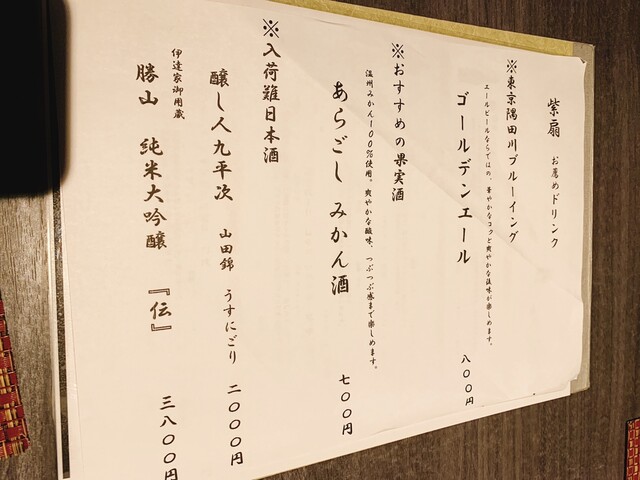 紫扇 お薦めドリンク
※東京隅田川ブルーイング
エールビールならではの、華やかなコクと爽やかな後味が楽しめます。
ゴールデンエール 八〇〇円
※おすすめの果実酒
温州みかん100%使用。爽やかな酸味、つぶつぶ感まで楽しめます。
あらごしみかん酒 七〇〇円
※入荷難日本酒
醸し人九平次 山田錦 うすにごり 二〇〇〇円
伊達家御用蔵
勝山 純米大吟醸 『伝』 三八〇〇円